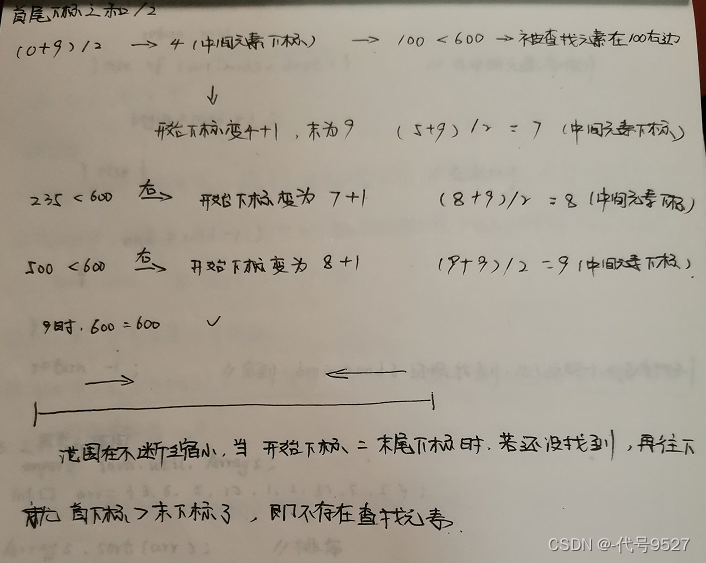 首尾下标之和/2
(0+9)/2 → 4 (中间元素下标) → 100 < 600 → 被查找元素在100右边
↓
开始下标变4+1，末为9 (5+9)/2 = 7 (中间元素下标)
235 < 600 右→ 开始下标变为 7+1 (8+9)/2 = 8 (中间元素下标)
500 < 600 右→ 开始下标变为 8+1 (9+9)/2 = 9 (中间元素下标)
9时，600 = 600 ✓
范围在不断缩小，当 开始下标 = 末尾下标时，若还没找到，再往下
就 首下标 > 末下标了，即不存在查找元素.
CSDN @-代号9527